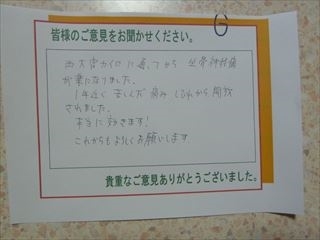 ⑥
皆様のご意見をお聞かせください。
西大宮カイロに通ってから 坐骨神経痛
が楽になりました。
1年近く苦しんだ痛み しびれから開放
されました。
本当に効きます!
これからもよろしくお願いします
貴重なご意見ありがとうございました。